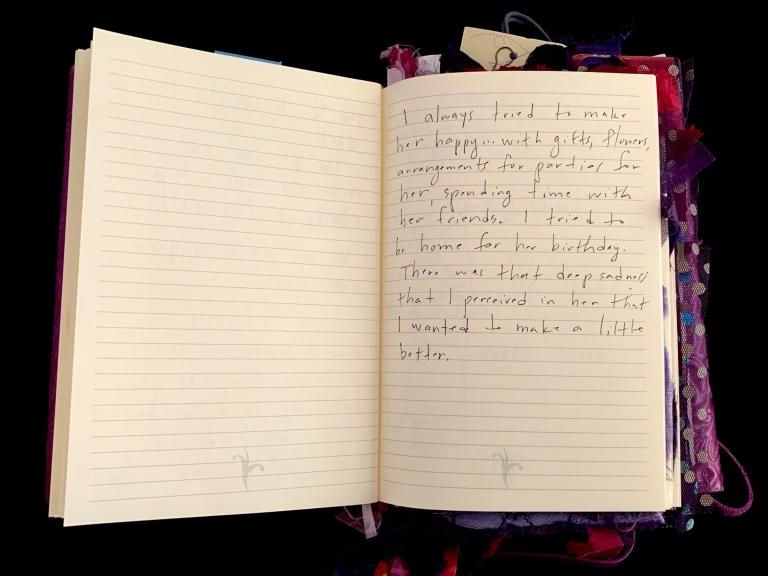 I always tried to make
her happy... with gifts, flowers,
arrangements for parties for
her, spending time with
her friends. I tried to
be home for her birthday.
There was that deep sadness
that I perceived in her that
I wanted to make a little
better.